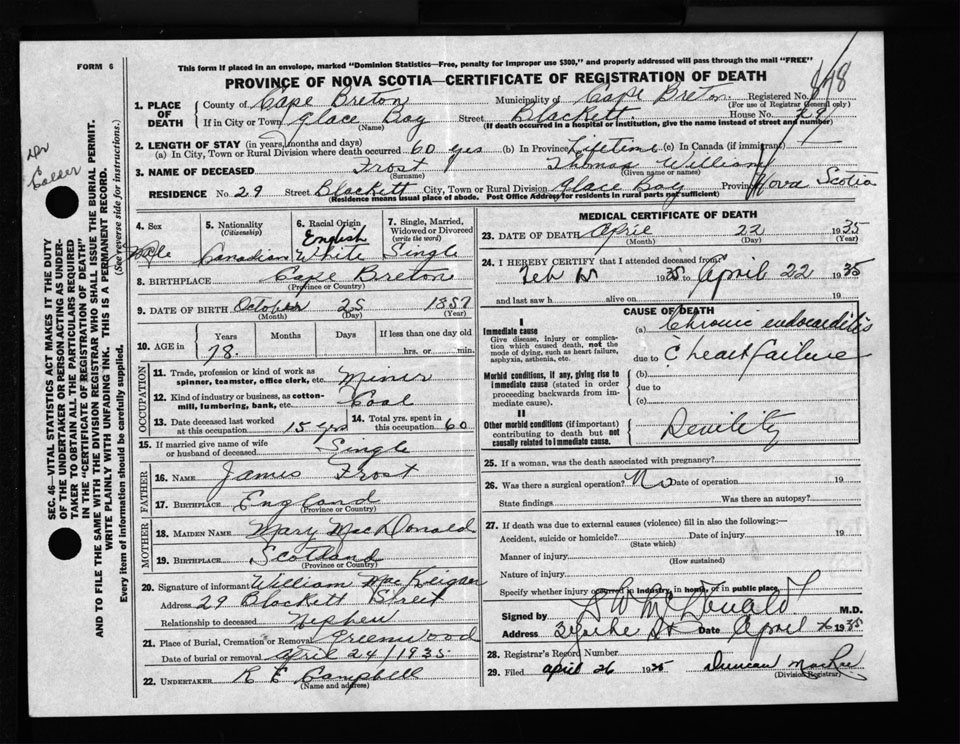 FORM 6
This form if placed in an envelope, marked "Dominion Statistics—Free, penalty for improper use $300," and properly addressed will pass through the mail "FREE"
PROVINCE OF NOVA SCOTIA—CERTIFICATE OF REGISTRATION OF DEATH
1. PLACE OF DEATH
County of Cape Breton Municipality of Cape Breton Registered No.
(For use of Registrar General only)
If in City or Town Glace Bay Street Blackett House No. 29
(Name) (If death occurred in a hospital or institution, give the name instead of street and number)
2. LENGTH OF STAY (in years, months and days)
(a) In City, Town or Rural Division where death occurred 60 yrs (b) In Province Lifetime (c) In Canada (if immigrant)
3. NAME OF DECEASED Frost Thomas William
(Surname) (Given name or names)
RESIDENCE No. 29 Street Blackett City, Town or Rural Division Glace Bay Province Nova Scotia
(Residence means usual place of abode. Post Office Address for residents in rural parts not sufficient)
4. Sex Male
5. Nationality (Citizenship) Canadian
6. Racial Origin English White
7. Single, Married, Widowed or Divorced (write the word) Single
8. BIRTHPLACE Cape Breton
(Province or Country)
9. DATE OF BIRTH October 25 1857
(Month) (Day) (Year)
10. AGE in Years Months Days If less than one day old
78. hrs. or min.
OCCUPATION
11. Trade, profession or kind of work as spinner, teamster, office clerk, etc. Miner
12. Kind of industry or business, as cotton-mill, lumbering, bank, etc. Coal
13. Date deceased last worked at this occupation. 15 yrs
14. Total yrs. spent in this occupation. 60
15. If married give name of wife or husband of deceased. Single
FATHER
16. NAME James Frost
17. BIRTHPLACE England
(Province or Country)
MOTHER
18. MAIDEN NAME Mary MacDonald
19. BIRTHPLACE Scotland
(Province or Country)
20. Signature of informant William MacKeigan
Address 29 Blackett Street
Relationship to deceased Nephew
21. Place of Burial, Cremation or Removal Greenwood
Date of burial or removal April 24/1935
22. UNDERTAKER R E Campbell
(Name and address)
MEDICAL CERTIFICATE OF DEATH
23. DATE OF DEATH April 22 1935
(Month) (Day) (Year)
24. I HEREBY CERTIFY that I attended deceased from
Feb 1935 to April 22 1935
and last saw h alive on 19
CAUSE OF DEATH
I
Immediate cause
Give disease, injury or complication which caused death, not the mode of dying, such as heart failure, asphyxia, asthenia, etc.
(a) Chronic endocarditis
due to c̄ heart failure
Morbid conditions, if any, giving rise to immediate cause (stated in order proceeding backwards from immediate cause).
(b)
due to
(c)
II
Other morbid conditions (if important) contributing to death but not causally related to immediate cause.
Devility
25. If a woman, was the death associated with pregnancy?
26. Was there a surgical operation? No Date of operation 19
State findings Was there an autopsy?
27. If death was due to external causes (violence) fill in also the following:—
Accident, suicide or homicide? Date of injury 19
(State which)
Manner of injury
(How sustained)
Nature of injury
Specify whether injury occurred in industry, in home, or in public place.
Signed by M.D.
Address Date April 26 1935
28. Registrar's Record Number
29. Filed April 26 1935 Duncan MacRae
(Division Registrar)
SEC. 46—VITAL STATISTICS ACT MAKES IT THE DUTY OF THE UNDERTAKER OR PERSON ACTING AS UNDERTAKER TO OBTAIN ALL THE PARTICULARS REQUIRED IN THE "CERTIFICATE OF REGISTRATION OF DEATH" AND TO FILE THE SAME WITH THE DIVISION REGISTRAR WHO SHALL ISSUE THE BURIAL PERMIT.
WRITE PLAINLY WITH UNFADING INK. THIS IS A PERMANENT RECORD.
Every item of information should be carefully supplied. (See reverse side for instructions.)